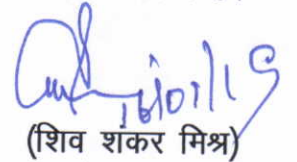 16/01/19
(शिव शंकर मिश्र)